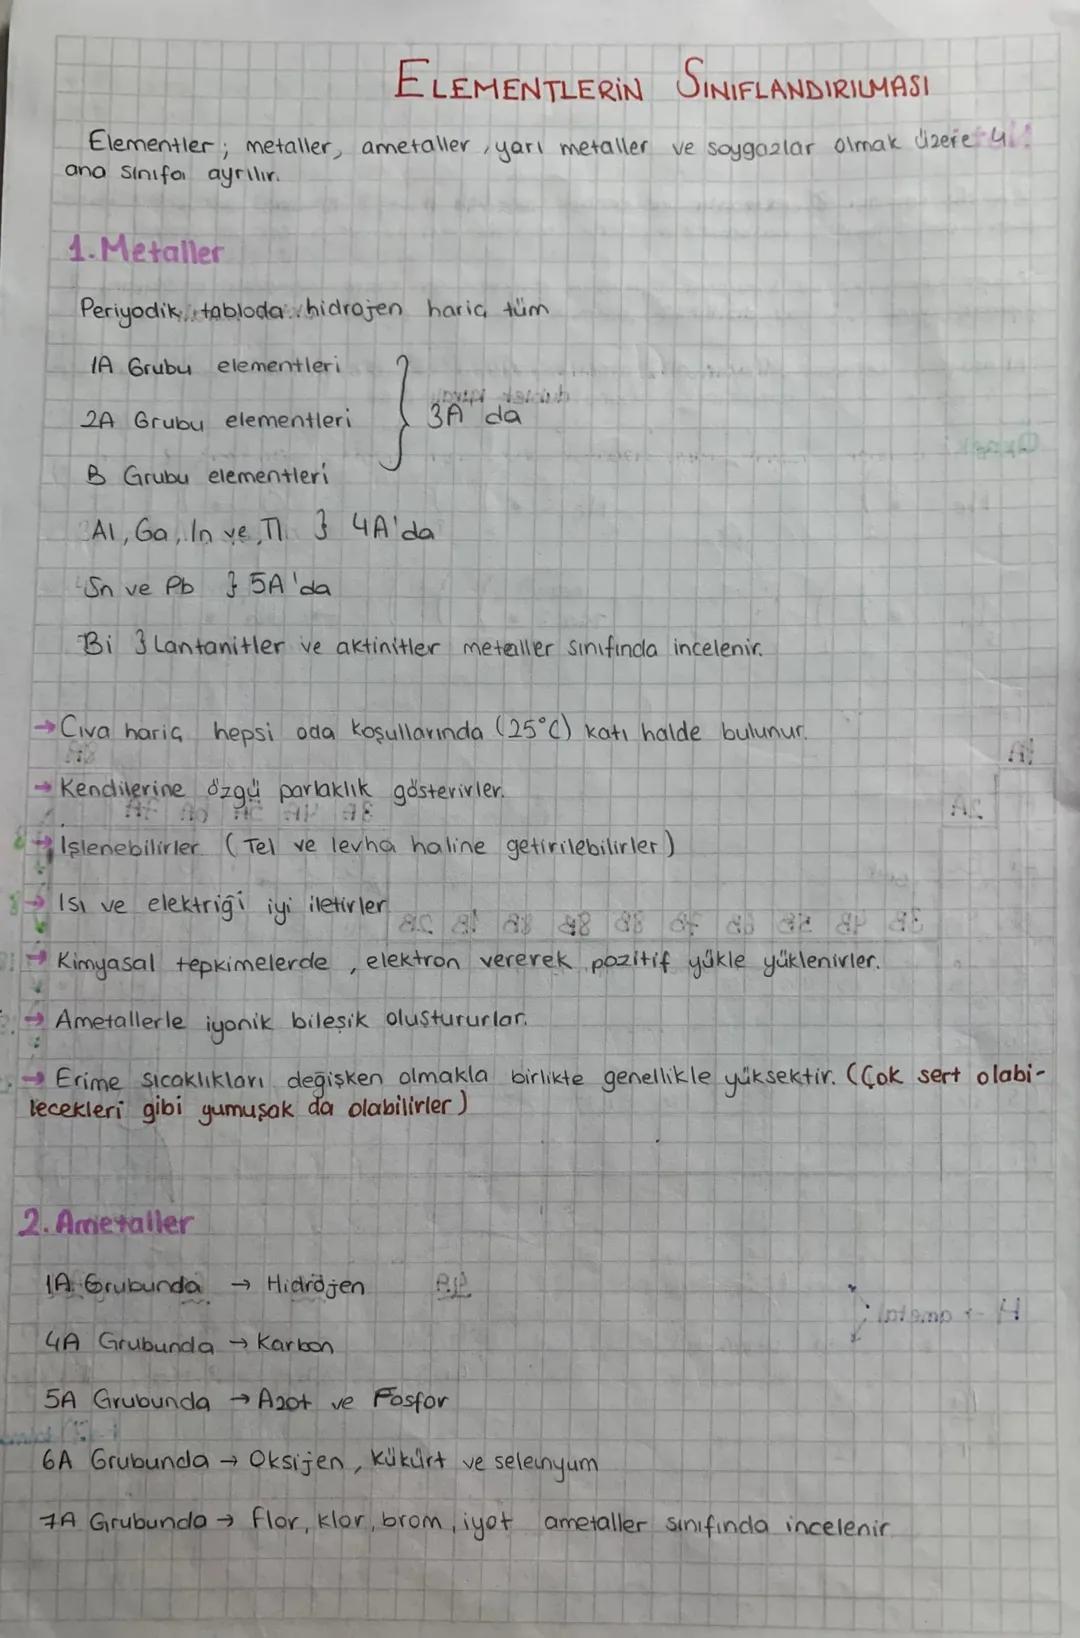 ELEMENTLERİN SINIFLANDIRILMASI
Elementler; metaller, ametaller, yarı metaller ve soygazlar olmak üzere 4
ana sınıfa ayrılır.
1. Metaller
Periyodik tabloda hidrojen hariç tüm
1A Grubu elementleri
2A Grubu elementleri } 3A'da
B Grubu elementleri
Al, Ga, In ve Tl } 4A'da
Sn ve Pb } 5A'da
Bi } Lantanitler ve aktinitler metaller sınıfında incelenir.
→ Cıva hariç hepsi oda koşullarında (25°C) katı halde bulunur.
→ Kendilerine özgü parlaklık gösterirler.
→ İşlenebilirler (Tel ve levha haline getirilebilirler)
→ Isı ve elektriği iyi iletirler
→ Kimyasal tepkimelerde, elektron vererek pozitif yükle yüklenirler.
→ Ametallerle iyonik bileşik oluştururlar.
→ Erime sıcaklıkları değişken olmakla birlikte genellikle yüksektir. (Çok sert olabi-
lecekleri gibi yumuşak da olabilirler)
2. Ametaller
1A Grubunda → Hidrojen
4A Grubunda → Karbon
5A Grubunda → Azot ve Fosfor
6A Grubunda → Oksijen, kükürt ve selenyum
7A Grubunda → flor, klor, brom, iyot ametaller sınıfında incelenir